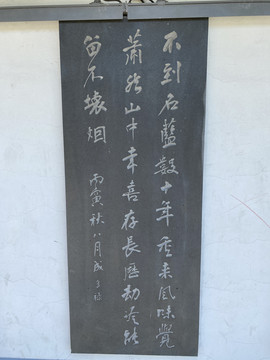 不到石蓝數十年重来風味覺
蕭然山中幸喜存長歷劫考
留不壞烟
丙寅秋八月成